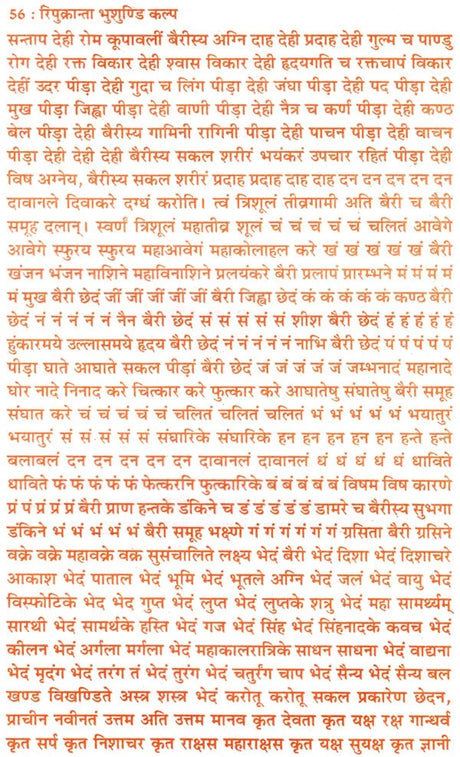 56 : रिपुक्रान्ता भुशुण्डि कल्प
सन्ताप देही रोम कूपावलीं बैरीस्य अग्नि दाह देही प्रदाह देही गुल्म च पाण्डु
रोग देही रक्त विकार देही श्वास विकार देही हृदयगति च रक्तचाप विकार
देहीं उदर पीड़ा देही गुदा च लिंग पीड़ा देही जंघा पीड़ा देही पद पीड़ा देही
मुख पीड़ा जिह्वा पीड़ा देही वाणी पीड़ा देही नैत्र च कर्ण पीड़ा देही कण्ठ
बेल पीड़ा देही बैरीस्य गामिनी रागिनी पीड़ा देही पाचन पीड़ा देही वाचन
पीड़ा देही देही बैरीस्य सकल शरीरं भयंकरं उपचार रहितं पीड़ा देही
विष अग्नेय, बैरीस्य सकल शरीरं प्रदाह प्रदाह दाह दाह दन दन दन दन दन
दावानले दिवाकरे दग्धं करोति। त्वं त्रिशूलं तीव्रगामी अति बैरी च बैरी
समूह दलान्। स्वर्णं त्रिशूलं महातीव्र शूलं चं चं चं चं चं चलितं आवेगे
आवेगे स्फुरय स्फुरय महाआवेगं महाकोलाहल करे खं खं खं खं खं बैरी
खंजन भंजन नाशिने महाविनाशिने प्रलयंकरे बैरी प्रलापं प्रारम्भने मं मं मं मं
मं मुख बैरी छेदं जीं जीं जीं जीं जीं बैरी जिह्वा छेदं कं कं कं कं कं कण्ठ बैरी
छेदं नं नं नं नं नं नैन बैरी छेदं सं सं सं सं सं शीश बैरी छेदं हं हं हं हं हं
हुंकारमये उल्लासमये हृदय बैरी छेदं नं नं नं नं नं नाभि बैरी छेदं पं पं पं पं पं
पीड़ा घाते आघाते सकल पीड़ां बैरी छेदं जं जं जं जं जं जम्भनादं महानादे
घोर नादे निनाद करे चित्कार करे फुत्कार करे आघातेषु संघातेषु बैरी समूह
संघात करे चं चं चं चं चं चलितं चलितं चलितं भं भं भं भं भं भयातुरं
भयातुरं सं सं सं सं सं संघारिके संघारिके हन हन हन हन हन हन्ते हन्ते
बलाबलं दन दन दन दन दन दावानलं दावानलं धं धं धं धं धं धाविते
धाविते फं फं फं फं फं फेत्करनि फुत्कारिके बं बं बं बं बं विषम विष कारणे
प्रं पं प्रं प्रं प्रं बैरी प्राण हन्तके डंकिने च डं डं डं डं डं डामरे च बैरीस्य सुभगा
डंकिने भं भं भं भं भं बैरी समूह भक्षणे गं गं गं गं गं गं ग्रसिता बैरी ग्रसिने
वक्रे वक्रे महावक्रे वक्र सुसंचालिते लक्ष्य भेदं बैरी भेदं दिशा भेदं दिशाचरे
आकाश भेदं पाताल भेदं भूमि भेदं भूतले अग्नि भेदं जलं भेदं वायु भेदं
विस्फोटिके भेद भेदं गुप्त भेदं लुप्त भेदं लुप्तके शत्रु भेदं महा सामर्थ्यम्
सारथी भेदं सामर्थके हस्ति भेदं गज भेदं सिंह भेदं सिंहनादके कवच भेदं
कीलन भेदं अर्गला मर्गला भेदं महाकालरात्रिके साधन साधना भेदं वाद्यना
भेदं मृदंग भेदं तरंग तं भेदं तुरंग भेदं चतुर्रंग चाप भेदं सैन्य भेदं सैन्य बल
खण्ड विखण्डिते अस्त्र शस्त्र भेदं करोतू करोतू सकल प्रकारेण छेदन,
प्राचीन नवीनतं उत्तम अति उत्तम मानव कृत देवता कृत यक्ष रक्ष गान्धर्व
कृत सर्प कृत निशाचर कृत राक्षस महाराक्षस कृत यक्ष सुयक्ष कृत ज्ञानी